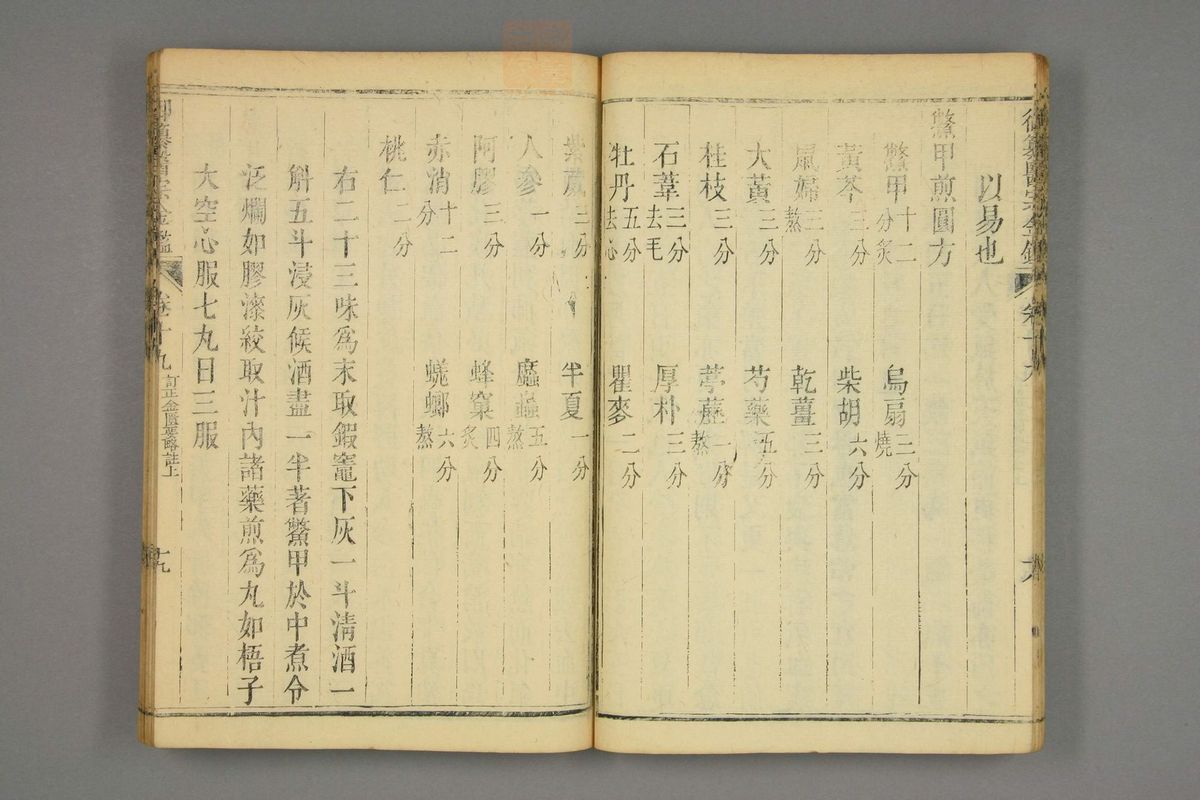 御纂醫宗金鑑 卷十九
以易也
鱉甲煎圓方
鱉甲十二分炙 烏扇三分燒
黃芩三分 柴胡六分
鼠婦三分熬 乾薑三分
大黃三分 芍藥五分
桂枝三分 葶藶一分熬
石葦三分去毛 厚朴三分
牡丹五分去心 瞿麥二分
紫葳三分 半夏一分
人參一分 䗪蟲五分熬
阿膠三分 蜂窠四分炙
赤消十二分 蜣螂六分熬
桃仁二分
右二十三味為末取鍜竈下灰一斗淸酒一
斛五斗浸灰候酒盡一半著鱉甲於中煮令
泛爛如膠漆絞取汁內諸藥煎為丸如梧子
大空心服七丸日三服
御纂醫宗金鑑 卷十九 訂正金匱要略註上 十九